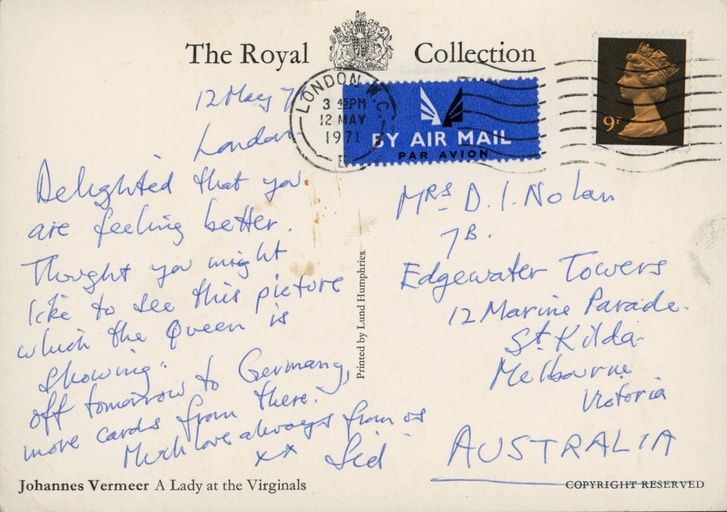 The Royal Collection
12 May 71
London
Delighted that you
are feeling better.
Thought you might
like to see this picture
which the Queen is
showing.
off tomorrow to Germany,
more cards from there.
Much love always from us
xx Sid
Johannes Vermeer A Lady at the Virginals
Printed by Lund Humphries
LONDON W.C.
3 45PM
12 MAY
1971
E
BY AIR MAIL
PAR AVION
9P
Mrs D. I. Nolan
7B.
Edgewater Towers
12 Marine Parade.
St. Kilda.
Melbourne
Victoria
AUSTRALIA
COPYRIGHT RESERVED